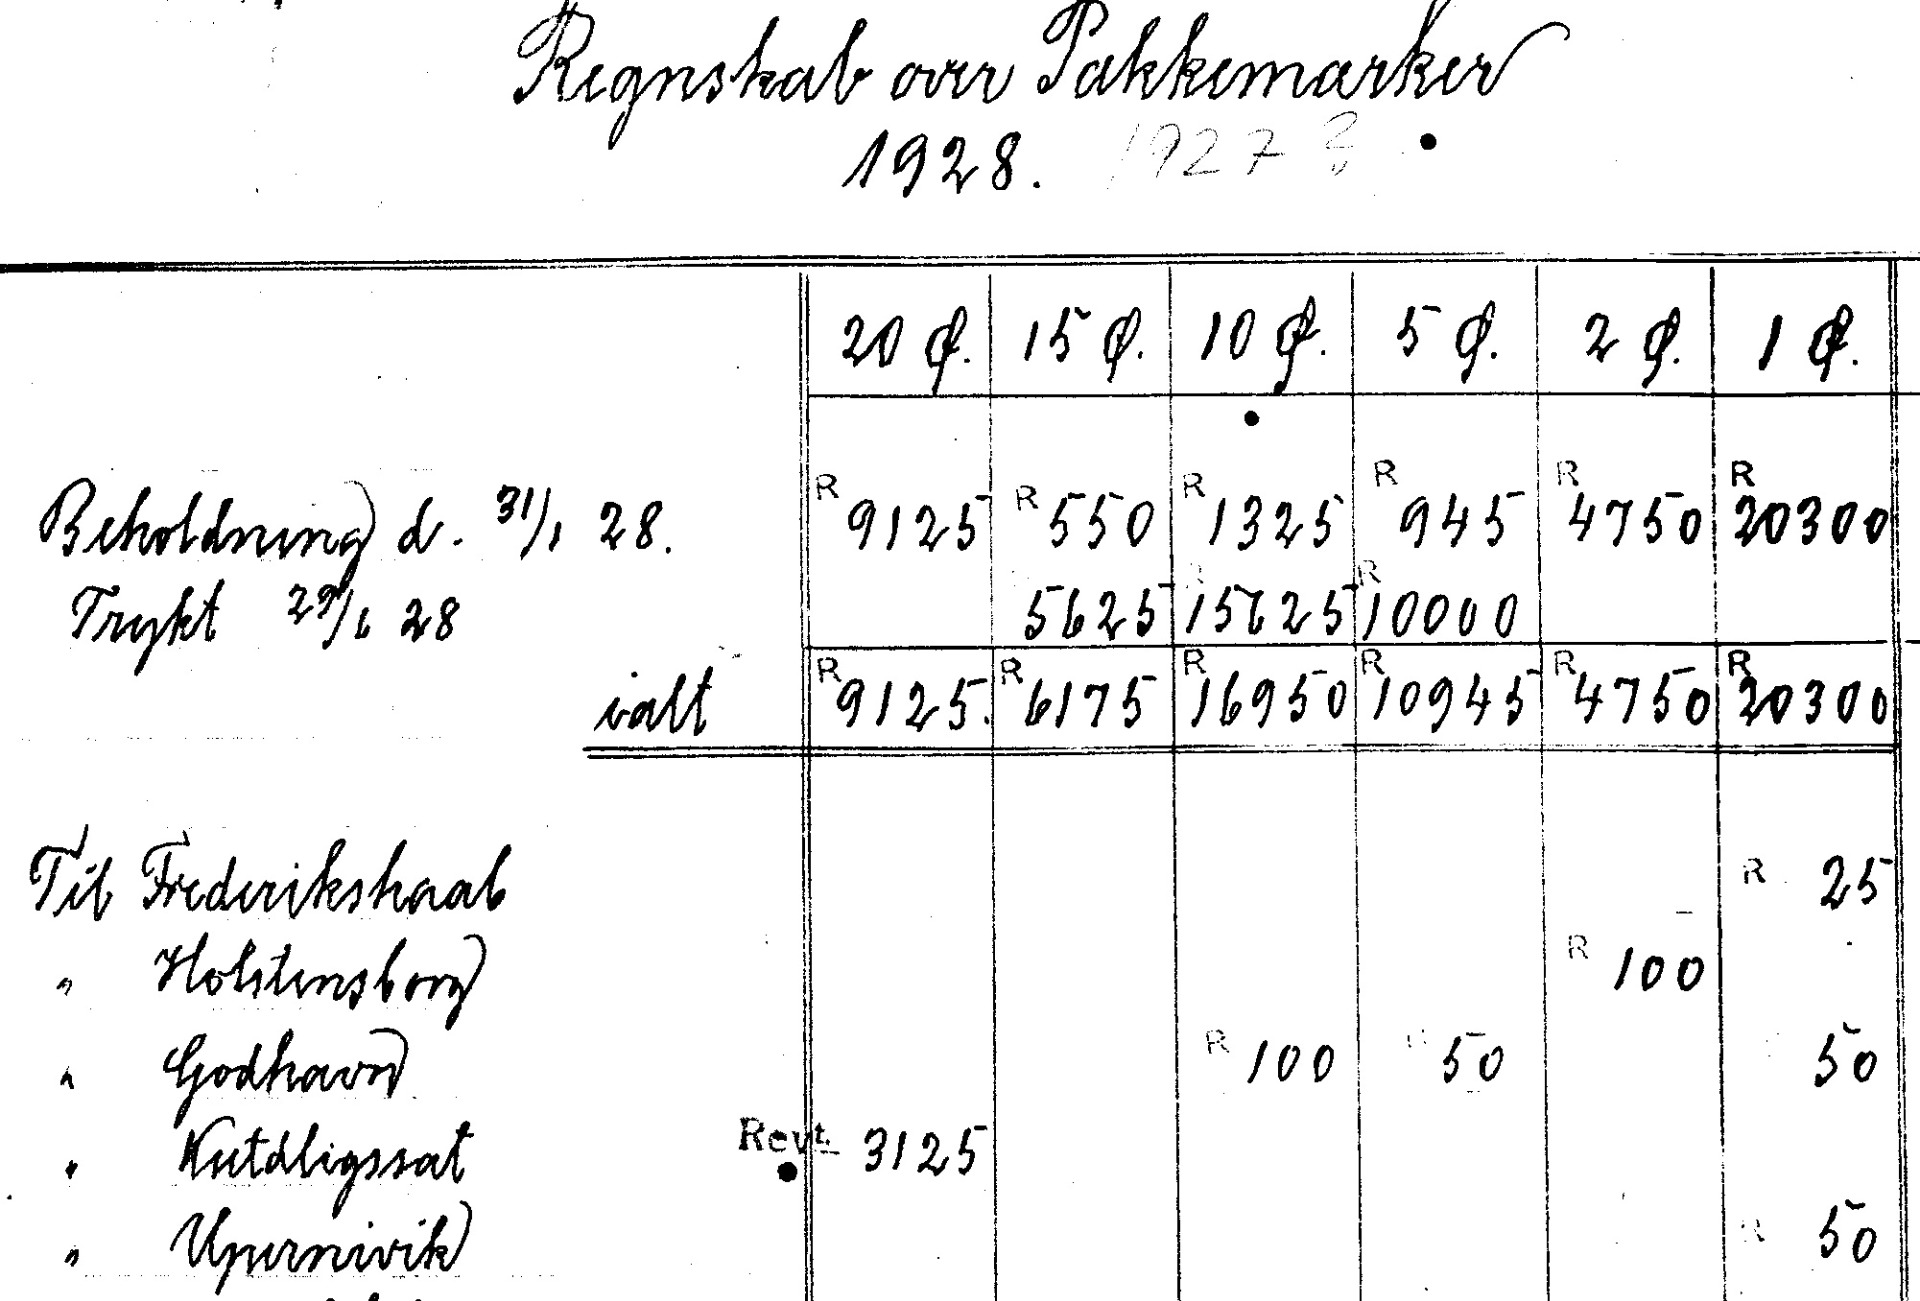 Regnskab over Pakkemarker
1928. 1927?
20 Ø. 15 Ø. 10 Ø. 5 Ø. 2 Ø. 1 Ø.
Beholdning d. 31/1 28. R 9125 R 550 R 1325 R 945 R 4750 R 20300
Trykt 29/6 28 5625 R 15625 R 10000
ialt R 9125. R 6175 R 16950 R 10945 R 4750 R 20300
Til Frederikshaab R 25
" Holstensborg R 100
" Godhavn R 100 50 50
" Kutdligssat Revt. 3125
" Upernivik R 50